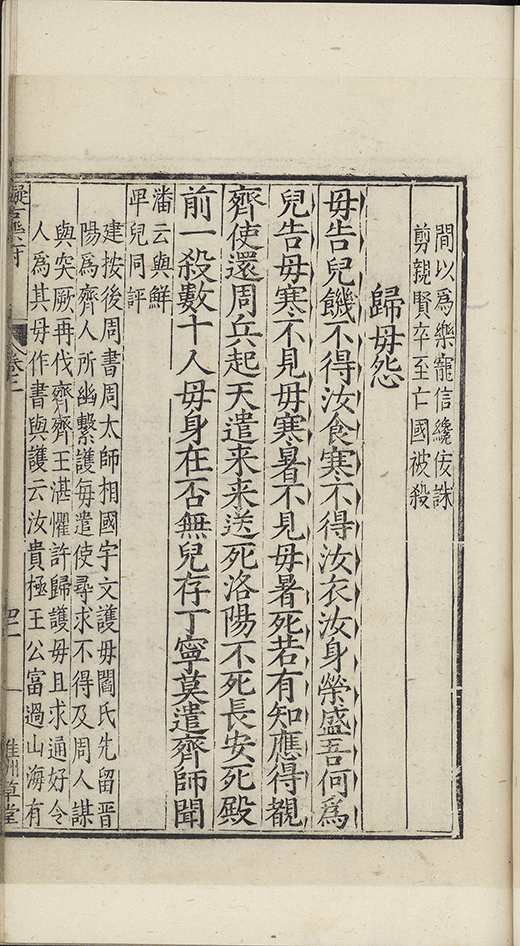 間以為樂寵信纔佞誅
剪親賢卒至亡國被殺
歸母怨
母告兒饑不得汝食寒不得汝衣汝身榮盛吾何為
兒告母寒不見母寒暑不見母暑死若有知應得覩
齊使還周兵起天遣来来送死洛陽不死長安死殿
前一殺數十人母身在否無兒存丁寧莫遣齊師聞
潘云與鮮
卑兒同評
建按後周書周太師相國宇文護母閻氏先留晋
陽為齊人所幽繫護每遣使尋求不得及周人謀
與突厥再伐齊齊王湛懼許歸護母且求通好令
人為其母作書與護云汝貴極王公富過山海有
擬樂府 卷二 四二 淮州草堂